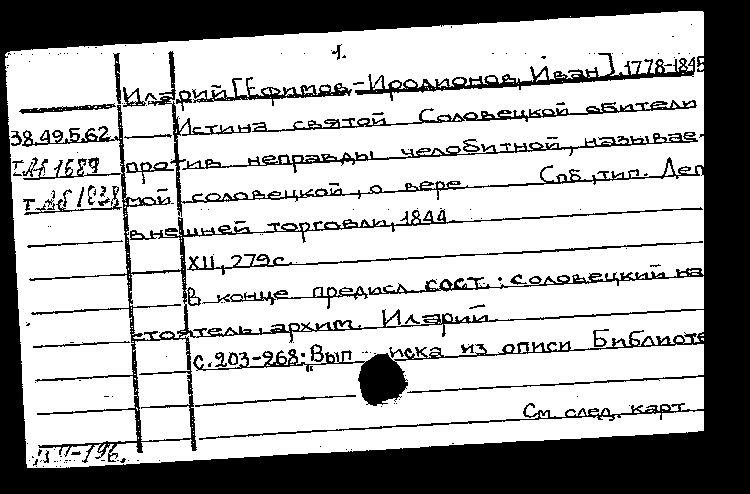 1.
Иларий [Ефимов-Иродионов, Иван]. 1778-1845
38.49.5.62. Истина святой Соловецкой обители
ТАб 1689 против неправды челобитной, называе-
ТАб 1838 мой соловецкой, о вере. Спб., тип. Деп
внешней торговли, 1844.
XII, 279с.
В конце предисл. сост.: соловецкий на
стоятель архим. Иларий.
с.203-268: "Вып иска из описи Библиоте
См. след. карт.